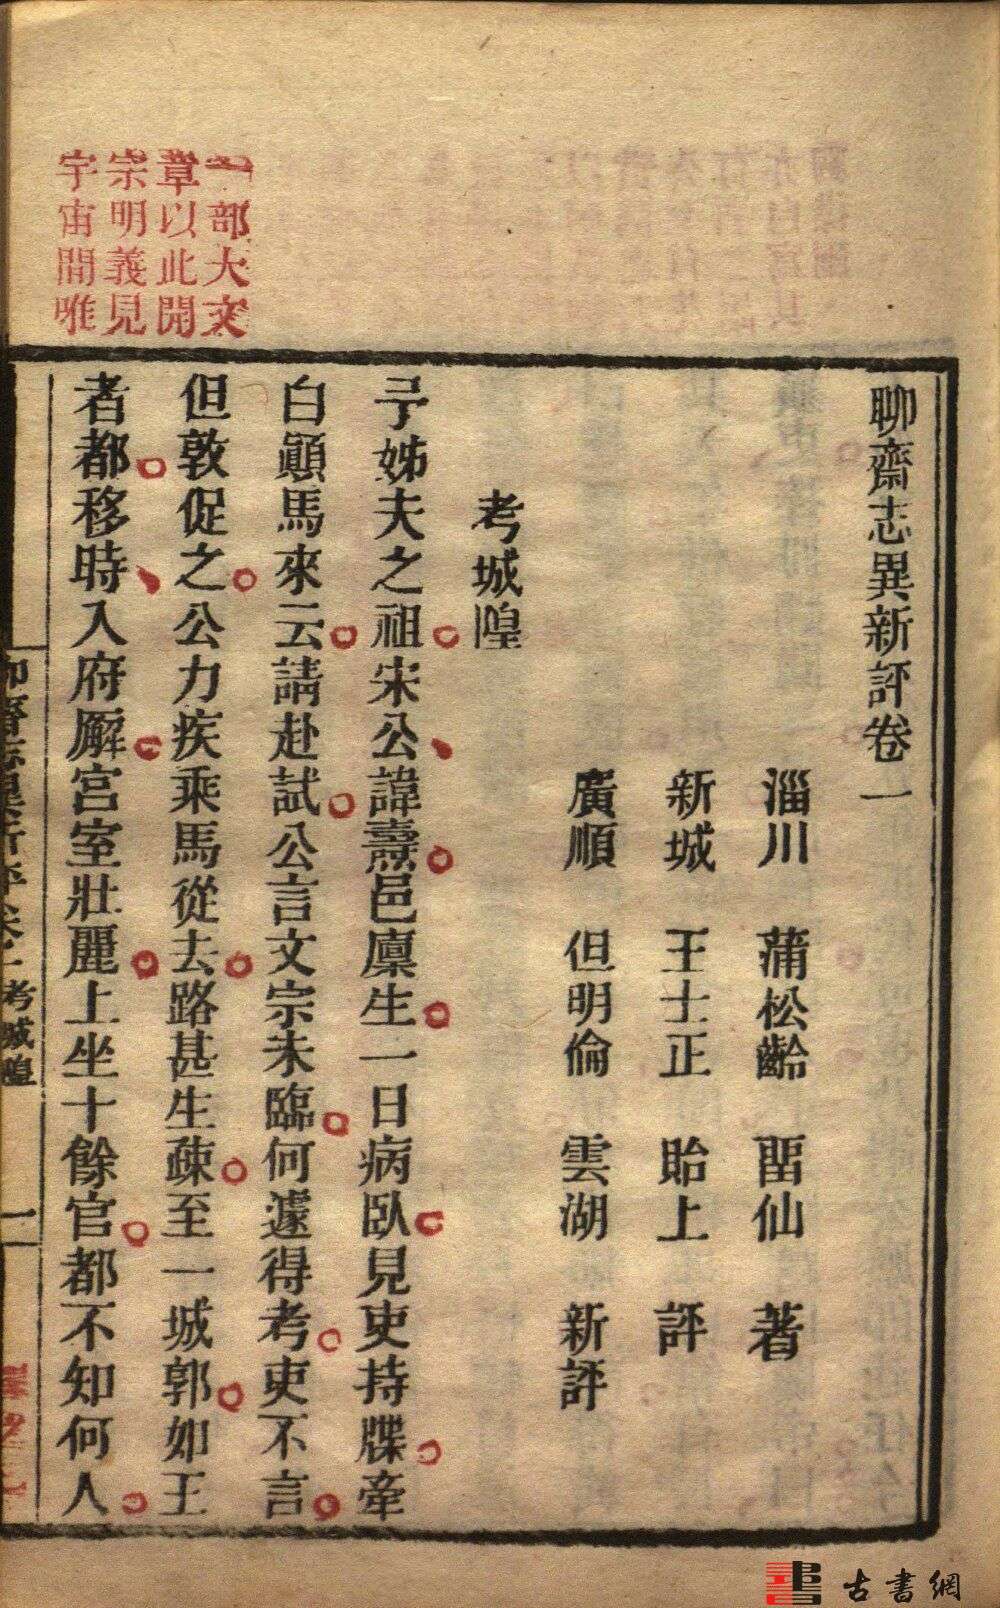 聊齋志異新評卷一
淄川 蒲松齡 畱仙 著
新城 王士正 貽上 評
廣順 但明倫 雲湖 新評
考城隍
予姊夫之祖宋公諱燾邑廩生一日病臥見吏持牒牽
白顚馬來云請赴試公言文宗未臨何遽得考吏不言
但敦促之公力疾乘馬從去路甚生疎至一城郭如王
者都移時入府廨宮室壯麗上坐十餘官都不知何人
一部大文
章以此開
宗明義見
宇宙間唯
聊齋志異新評卷一 考城隍
一
古書網